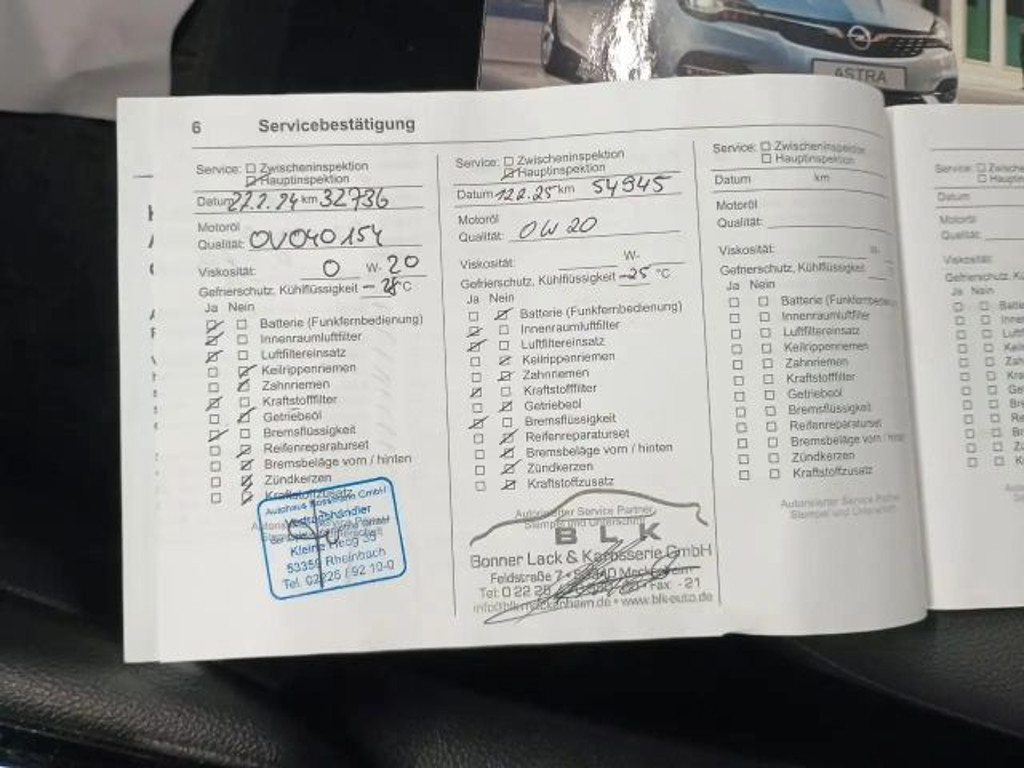 ASTRA
6 Servicebestätigung
Service: Zwischeninspektion
Hauptinspektion
Datum 22.2.24 km 32736
Motoröl
Qualität: OV040154
Viskosität: 0 W- 20
Gefrierschutz, Kühlflüssigkeit °C
Ja Nein
Batterie (Funkfernbedienung)
Innenraumluftfilter
Luftfiltereinsatz
Keilrippenriemen
Zahnriemen
Kraftstofffilter
Getriebeöl
Bremsflüssigkeit
Reifenreparaturset
Bremsbeläge vorn / hinten
Zündkerzen
Kraftstoffzusatz
Autohaus GmbH
Vertragshändler
Kleine Heeg
53359 Rheinbach
Tel. 02226 / 92 10-0
Service: Zwischeninspektion
Hauptinspektion
Datum 12.2.25 km 54945
Motoröl
Qualität: 0W20
Viskosität: W-
Gefrierschutz, Kühlflüssigkeit -25 °C
Ja Nein
Batterie (Funkfernbedienung)
Innenraumluftfilter
Luftfiltereinsatz
Keilrippenriemen
Zahnriemen
Kraftstofffilter
Getriebeöl
Bremsflüssigkeit
Reifenreparaturset
Bremsbeläge vorn / hinten
Zündkerzen
Kraftstoffzusatz
Autorisierter Service Partner
Stempel und Unterschrift
BLK
Bonner Lack & Karosserie GmbH
Feldstraße 7 •
Tel: 0 22 25 Fax: -21
info@blk-meckenheim.de • www.blk-auto.de
Service: Zwischeninspektion
Hauptinspektion
Datum km
Motoröl
Qualität:
Viskosität: W-
Gefrierschutz, Kühlflüssigkeit
Ja Nein
Batterie (Funkfernbedienung
Innenraumluftfilter
Luftfiltereinsatz
Keilrippenriemen
Zahnriemen
Kraftstofffilter
Getriebeöl
Bremsflüssigkeit
Reifenreparaturset
Bremsbeläge vorn / hinten
Zündkerzen
Kraftstoffzusatz
Autorisierter Service Partner
Stempel und Unterschrift
Service: Zwische
Hauptin
Datum
Motoröl
Qualität:
Viskosität:
Gefrierschutz, Kü
Ja Nein